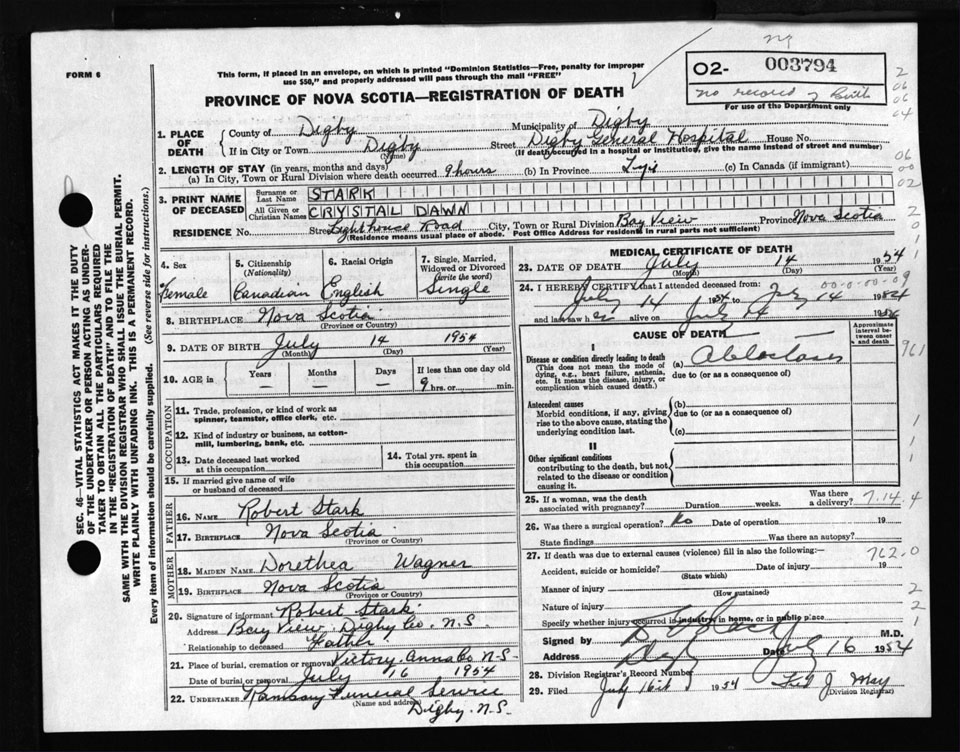 FORM 6
This form, if placed in an envelope, on which is printed "Dominion Statistics—Free, penalty for improper
use $50," and properly addressed will pass through the mail "FREE"
PROVINCE OF NOVA SCOTIA—REGISTRATION OF DEATH
02- 003794
no record of birth
For use of the Department only
1. PLACE OF DEATH
County of Digby
Municipality of Digby
If in City or Town Digby
(Name)
Street Digby General Hospital House No.
(If death occurred in a hospital or institution, give the name instead of street and number)
2. LENGTH OF STAY (in years, months and days)
(a) In City, Town or Rural Division where death occurred 9 hours (b) In Province Life (c) In Canada (if immigrant)
3. PRINT NAME OF DECEASED
Surname or Last Name STARK
All Given or Christian Names CRYSTAL DAWN
RESIDENCE No. Street Lighthouse Road City, Town or Rural Division Bay View Province Nova Scotia
(Residence means usual place of abode. Post Office Address for residents in rural parts not sufficient)
4. Sex
Female
5. Citizenship
(Nationality)
Canadian
6. Racial Origin
English
7. Single, Married,
Widowed or Divorced
(write the word)
Single
8. BIRTHPLACE Nova Scotia
(Province or Country)
9. DATE OF BIRTH July 14 1954
(Month) (Day) (Year)
10. AGE in Years Months Days If less than one day old
— — — 9 hrs. or min.
OCCUPATION
11. Trade, profession, or kind of work as
spinner, teamster, office clerk, etc.
12. Kind of industry or business, as cotton-
mill, lumbering, bank, etc.
13. Date deceased last worked
at this occupation
14. Total yrs. spent in
this occupation
15. If married give name of wife
or husband of deceased
FATHER
16. NAME Robert Stark
17. BIRTHPLACE Nova Scotia
(Province or Country)
MOTHER
18. MAIDEN NAME Dorethea Wagner
19. BIRTHPLACE Nova Scotia
(Province or Country)
20. Signature of informant Robert Stark
Address Bay View. Digby Co. N.S.
Relationship to deceased Father
21. Place of burial, cremation or removal Victory. Anna Co N.S.
Date of burial or removal July 16 1954
22. UNDERTAKER Ramsay Funeral Service
(Name and address) Digby. N.S.
MEDICAL CERTIFICATE OF DEATH
23. DATE OF DEATH July 14 1954
(Month) (Day) (Year)
24. I HEREBY CERTIFY that I attended deceased from:
July 14 1954 to July 14 1954
and last saw her alive on July 14 1954
CAUSE OF DEATH
Approximate
interval be-
tween onset
and death
I
Disease or condition directly leading to death
(This does not mean the mode of
dying, e.g., heart failure, asthenia,
etc. It means the disease, injury, or
complication which caused death.)
(a)
due to (or as a consequence of)
Antecedent causes
Morbid conditions, if any, giving
rise to the above cause, stating the
underlying condition last.
(b)
due to (or as a consequence of)
(c)
II
Other significant conditions
contributing to the death, but not
related to the disease or condition
causing it.
25. If a woman, was the death
associated with pregnancy? Duration weeks.
Was there
a delivery?
7.14.4
26. Was there a surgical operation? No Date of operation 19
State findings Was there an autopsy?
27. If death was due to external causes (violence) fill in also the following:— 762.0
Accident, suicide or homicide? Date of injury 19
(State which)
Manner of injury
(How sustained)
Nature of injury
Specify whether injury occurred in industry, in home, or in public place
Signed by M.D.
Address Digby Date July 16 1954
28. Division Registrar's Record Number
29. Filed July 16th 1954 J May
(Division Registrar)
SEC. 46—VITAL STATISTICS ACT MAKES IT THE DUTY
OF THE UNDERTAKER OR PERSON ACTING AS UNDER-
TAKER TO OBTAIN ALL THE PARTICULARS REQUIRED
IN THE "REGISTRATION OF DEATH" AND TO FILE THE
SAME WITH THE DIVISION REGISTRAR WHO SHALL ISSUE THE BURIAL PERMIT.
WRITE PLAINLY WITH UNFADING INK. THIS IS A PERMANENT RECORD.
Every item of information should be carefully supplied. (See reverse side for instructions.)